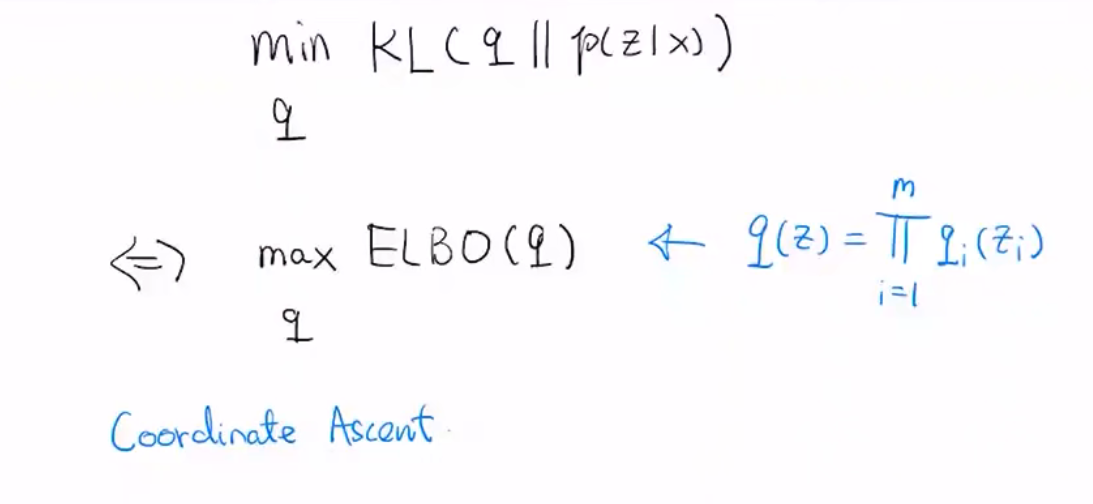 min KL(q || p(z|x))
q
⇔ max ELBO(q) ← q(z) = ∏ᵢ₌₁ᵐ qᵢ(zᵢ)
q
Coordinate Ascent